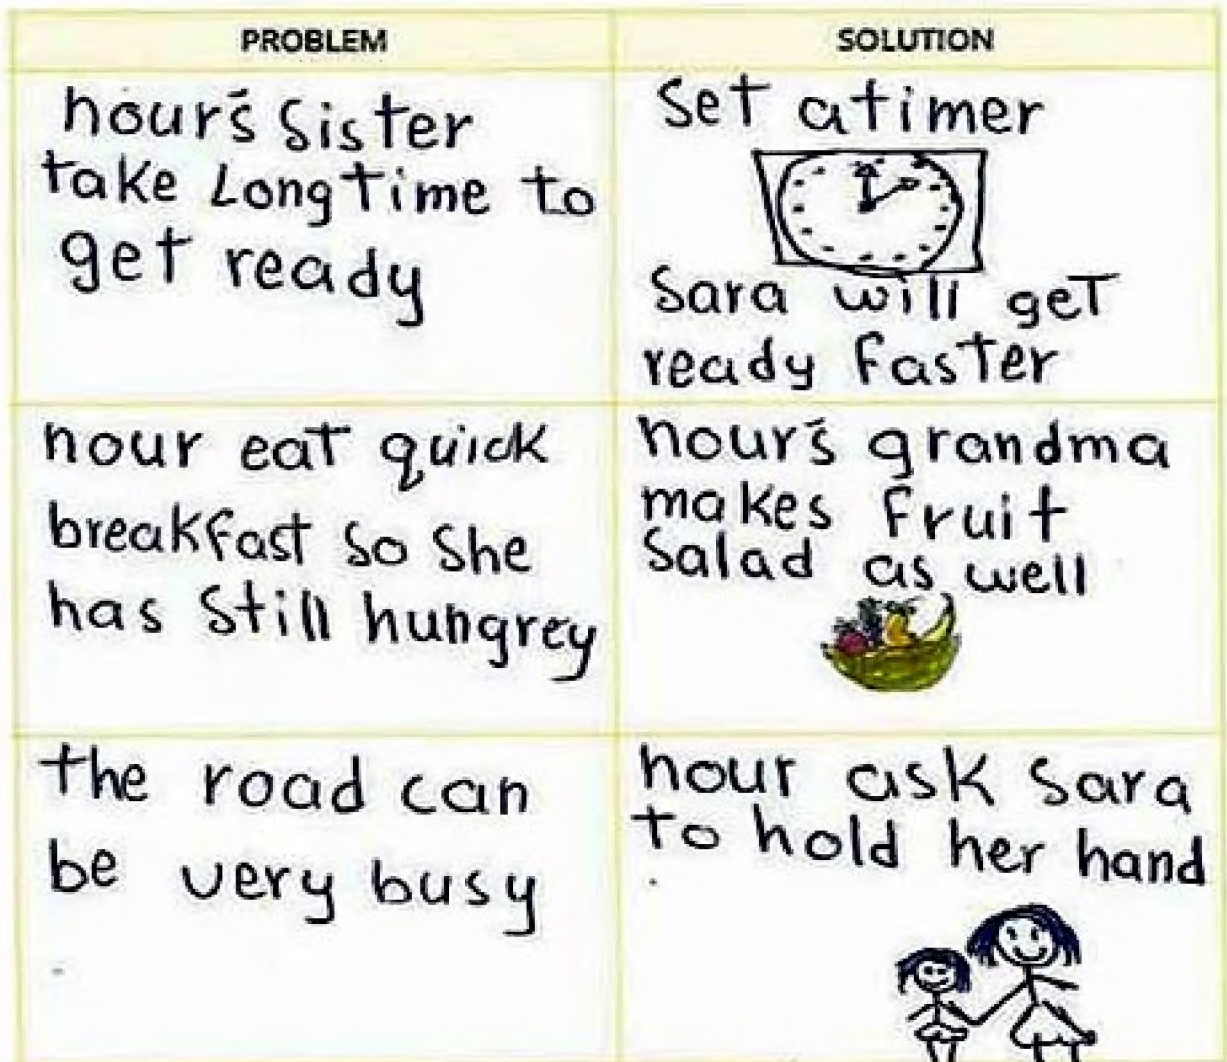 PROBLEM
SOLUTION
hour's Sister
take Long Time to
get ready
Set a timer
Sara will get
ready faster
hour eat quick
breakfast so She
has Still hungrey
hour's grandma
makes fruit
Salad as well
the road can
be very busy
hour ask Sara
to hold her hand